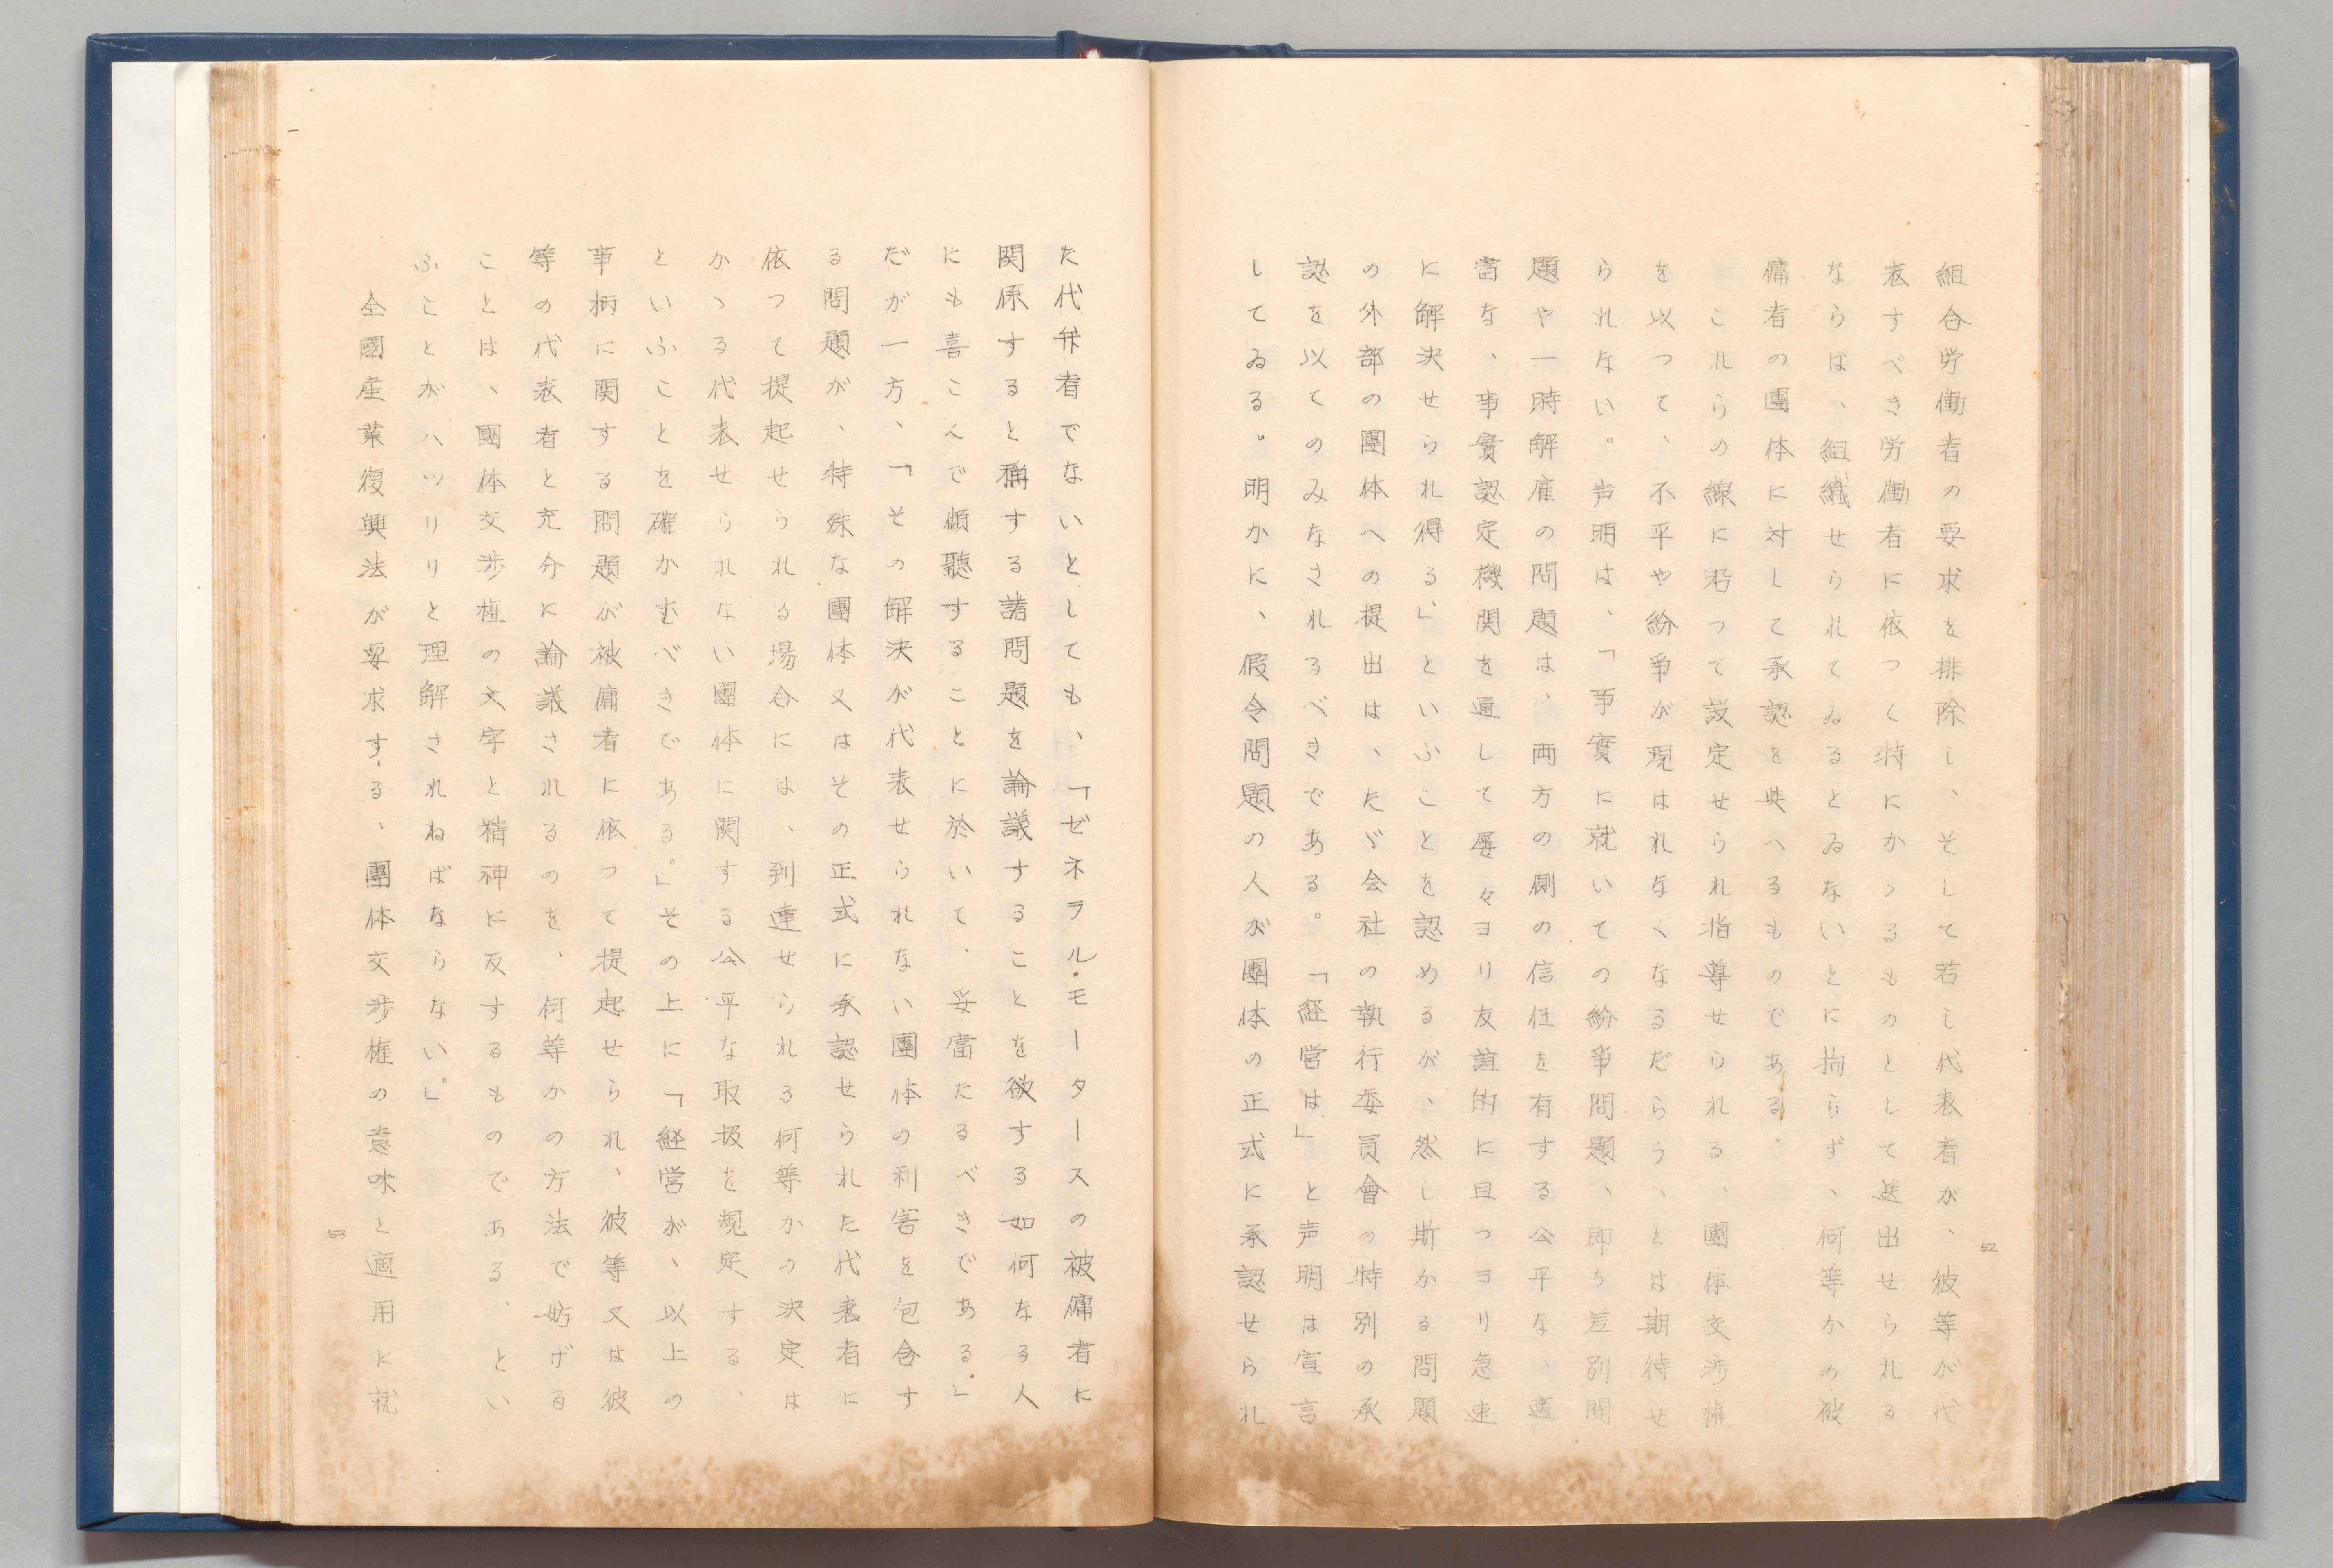 組合労働者の要求を排除し、そして若し代表者が、彼等が代
表すべき労働者に依つて特にかゝるものとして送出せられる
ならば、組織せられてゐるとゐないとに拘らず、何等かの被
傭者の團体に対して承認を與へるものである。
これらの線に沿つて設定せられ指導せられる、團体交渉権
を以つて、不平や紛爭が現はれなくなるだらう、とは期待せ
られない。声明は、「事實に就いての紛爭問題、即ち差別問
題や一時解雇の問題は、両方の側の信任を有する公平な、適
當な、事實認定機関を通して屡々ヨリ友誼的に且つヨリ急速
に解決せられ得る」、といふことを認めるが、然し斯かる問題
の外部の團体への提出は、たゞ会社の執行委員會の特別の承
認を以てのみなされるべきである。「経営は、」と声明は宣言
してゐる。明かに、假令問題の人が團体の正式に承認せられ
52
た代弁者でないとしても、「ゼネラル・モータースの被傭者に
関係すると稱する諸問題を論議することを欲する如何なる人
にも喜こんで傾聽することに於いて、妥當たるべきである。」
だが一方、「その解決が代表せられない團体の利害を包含す
る問題が、特殊な團体又はその正式に承認せられた代表者に
依つて提起せられる場合には、到達せられる何等かの決定は
かゝる代表せられない團体に関する公平な取扱を規定する、
といふことを確かむべきである。」その上に「経営が、以上の
事柄に関する問題が被傭者に依つて提起せられ、彼等又は彼
等の代表者と充分に論議されるのを、何等かの方法で妨げる
ことは、團体交渉権の文字と精神に反するものである、とい
ふことがハツリリと理解されねばならない。」
全國産業復興法が要求する、團体交渉権の意味と適用に就
53